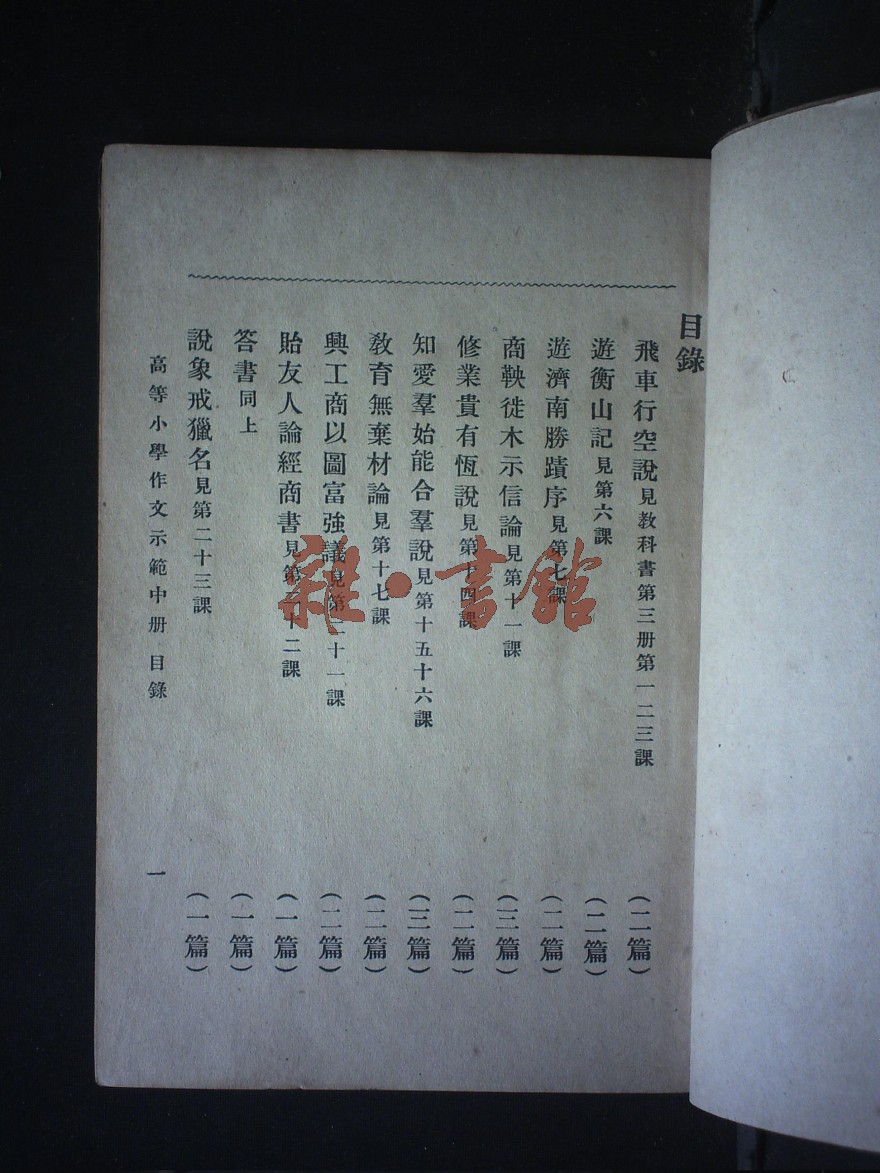 目錄
飛車行空說見教科書第三册第一二三課(二篇)
遊衡山記見第六課(二篇)
遊濟南勝蹟序見第七課(二篇)
商鞅徙木示信論見第十一課(三篇)
修業貴有恆說見第十四課(二篇)
知愛羣始能合羣說見第十五十六課(三篇)
敎育無棄材論見第十七課(二篇)
興工商以圖富強議見第二十一課(二篇)
貽友人論經商書見第二十二課(一篇)
答書同上(一篇)
說象戒獵名見第二十三課(一篇)
高等小學作文示範中册 目錄 一
雜·書館